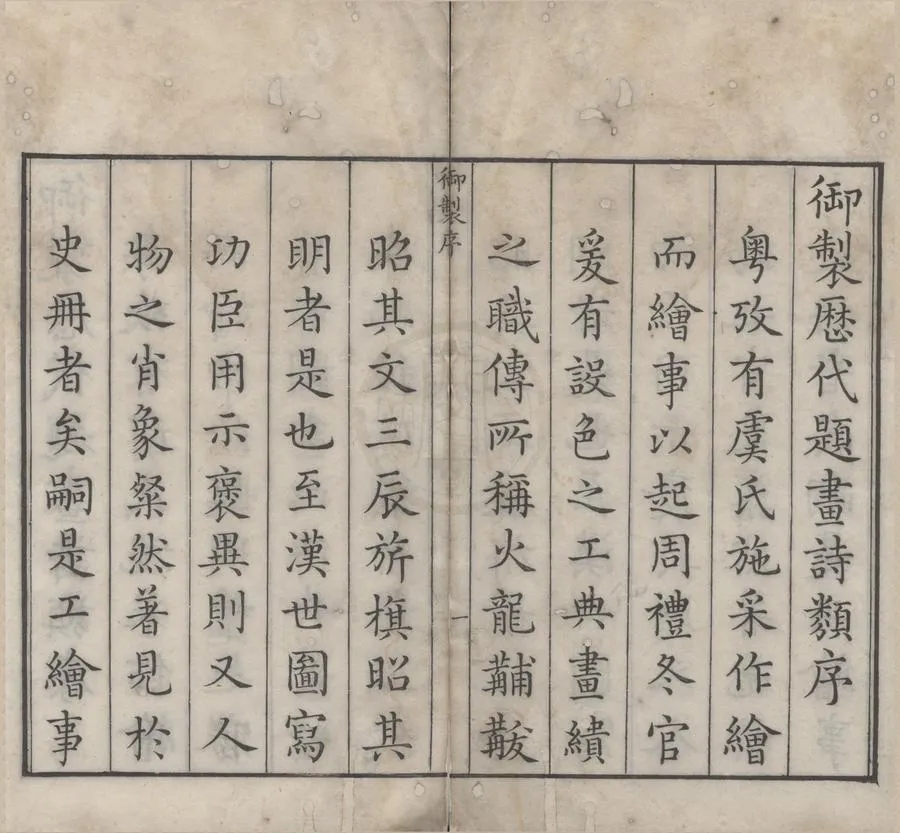 御製歷代題畫詩類序
粵攷有虞氏施采作繪
而繪事以起周禮冬官
爰有設色之工典畫繢
之職傳所稱火龍黼黻
御製序
一
昭其文三辰旂旗昭其
明者是也至漢世圖寫
功臣用示褒異則又人
物之肖象粲然著見於
史冊者矣嗣是工繪事